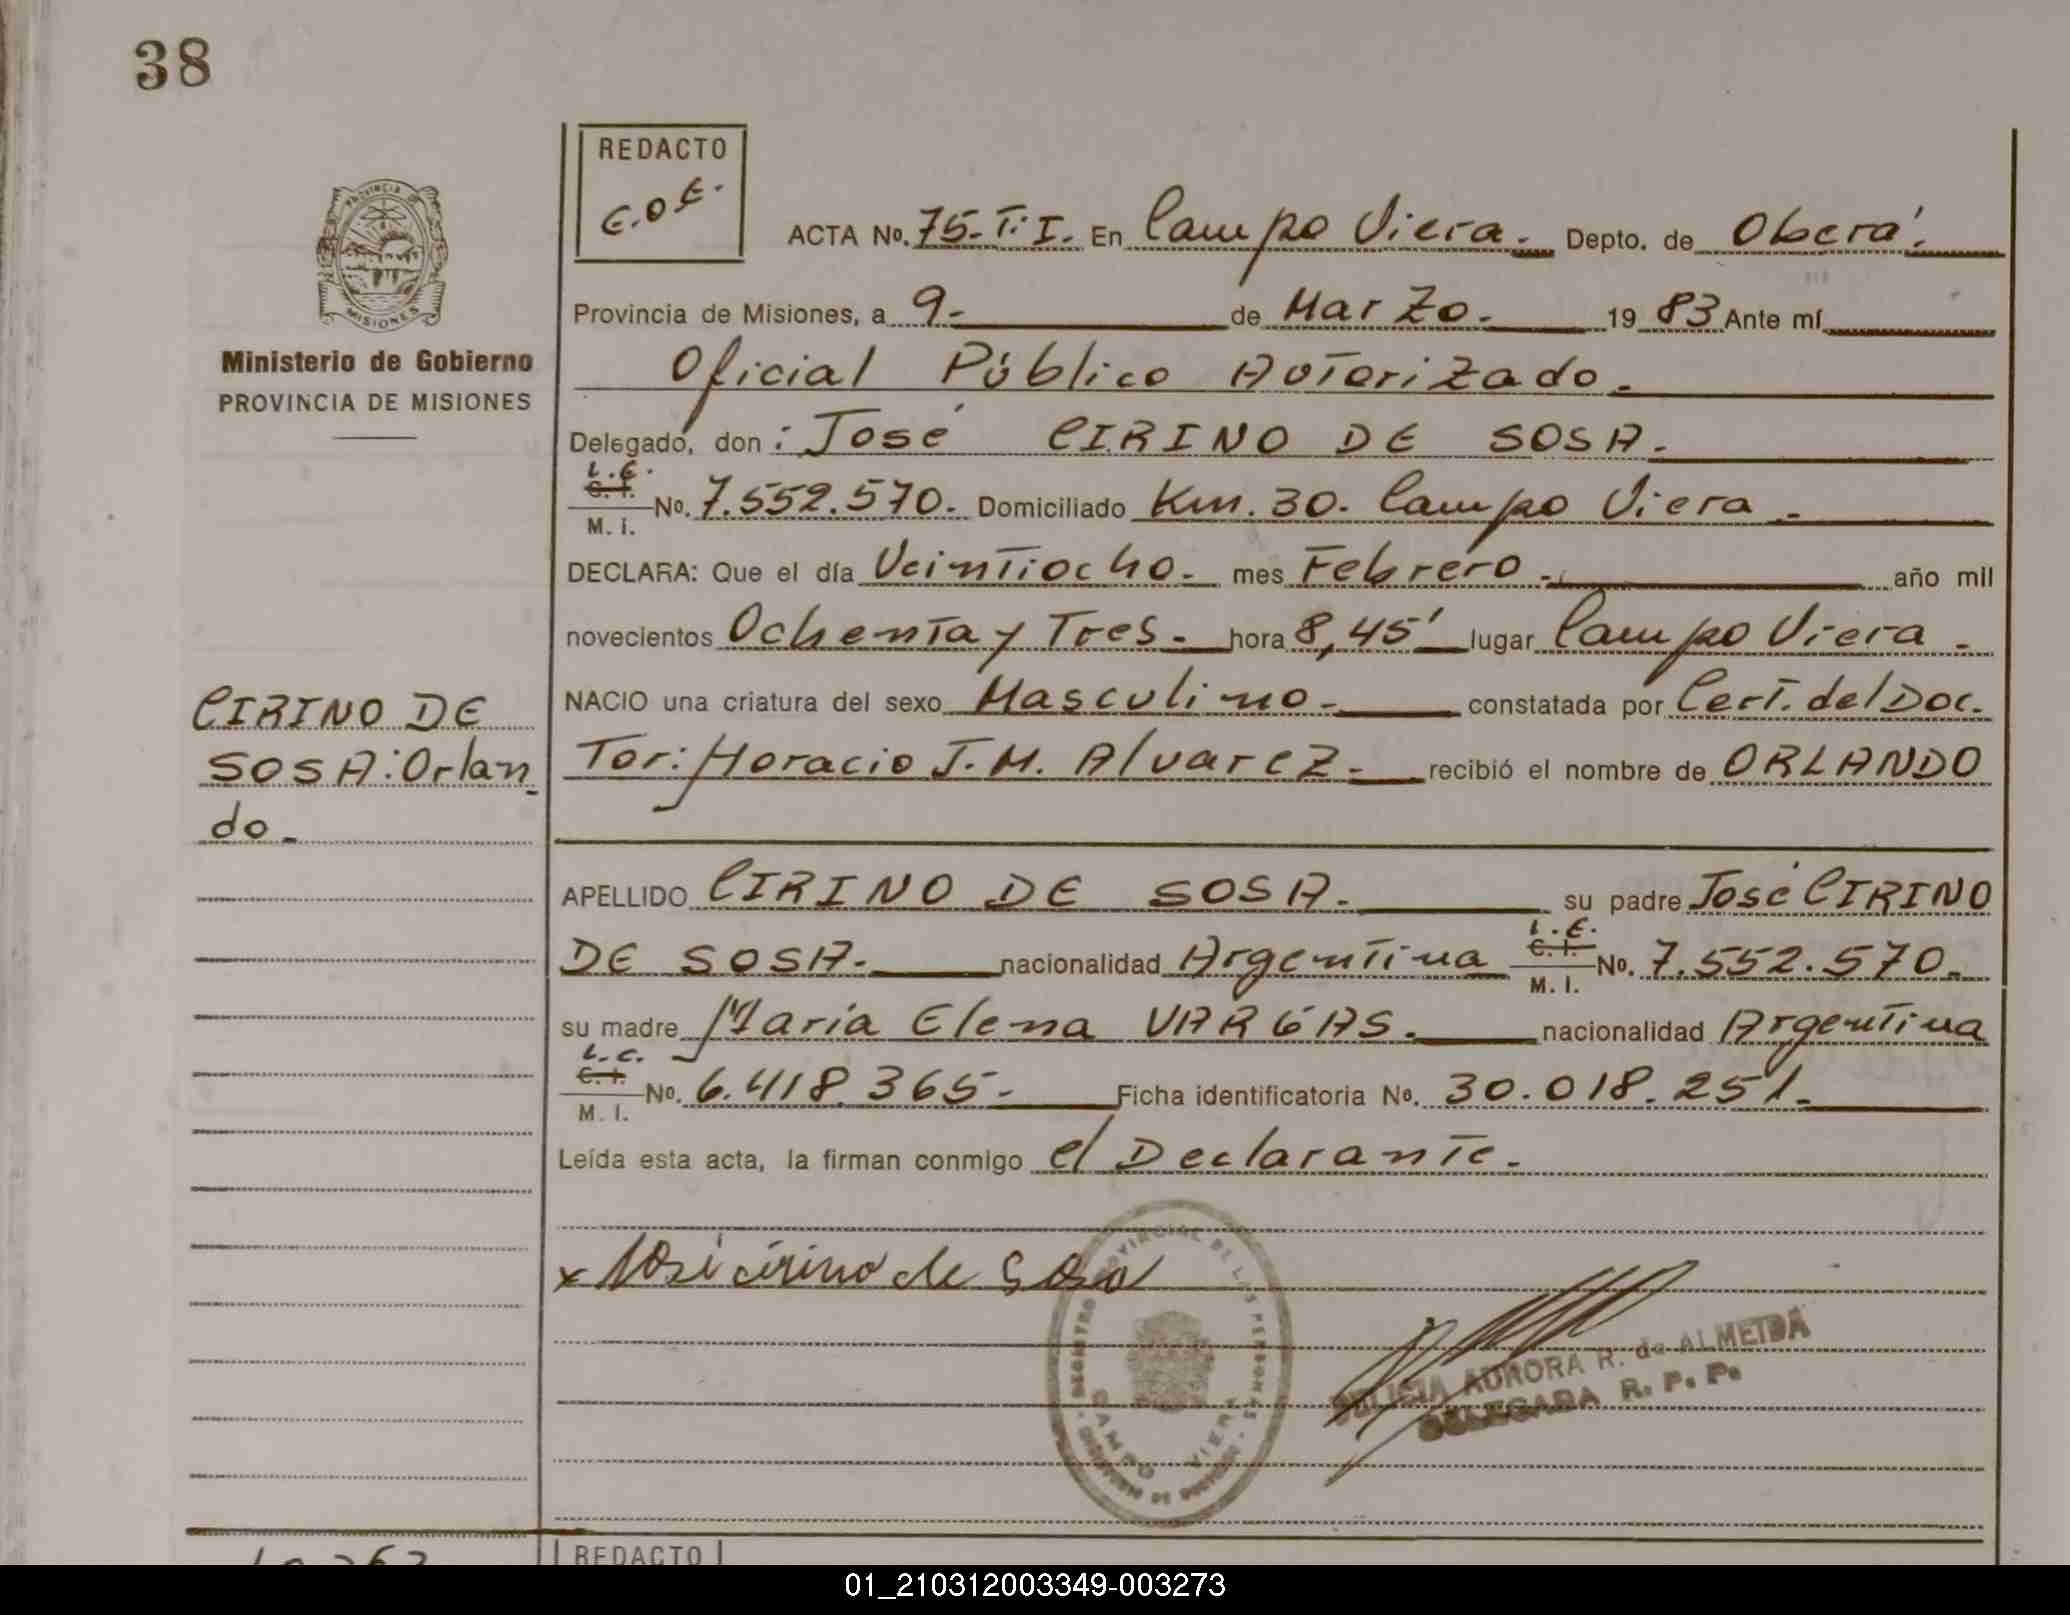 38
REDACTO
E.O.E.
ACTA No. 75-T.I. En Campo Viera.- Depto. de Oberá.
PROVINCIA
MISIONES
Provincia de Misiones, a 9.- de Marzo.- 1983 Ante mí
Ministerio de Gobierno
PROVINCIA DE MISIONES
Oficial Público Autorizado.-
Delegado, don: José CIRINO DE SOSA.-
L.E.
C. I.
M. I. No. 7.552.570.- Domiciliado Km. 30. Campo Viera.-
DECLARA: Que el día Veintiocho.- mes Febrero.- año mil
novecientos Ochenta y Tres.- hora 8,45' lugar Campo Viera.-
NACIO una criatura del sexo Masculino.- constatada por Cert. del Doc.
Tor: Horacio J.M. Alvarez.- recibió el nombre de ORLANDO
CIRINO DE
SOSA: Orlan-
do.-
APELLIDO CIRINO DE SOSA.- su padre José CIRINO
DE SOSA.- nacionalidad Argentina L.E. C. I. M. I. No. 7.552.570.-
su madre María Elena VARGAS.- nacionalidad Argentina
L.C.
C. I.
M. I. No. 6.418.365.- Ficha identificatoria No. 30.018.251.-
Leída esta acta, la firman conmigo el Declarante.-
x José cirino de Sosa
REGISTRO PROVINCIAL DE LAS PERSONAS
CAMPO VIERA
DELICIA AURORA R. de ALMEIDA
DELEGADA R. P. P.
REDACTO
01_210312003349-003273